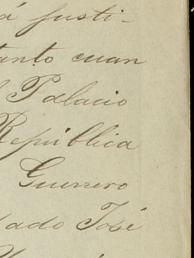 á justi-
tanto cuan
l Palacio
República
Guerrero
José